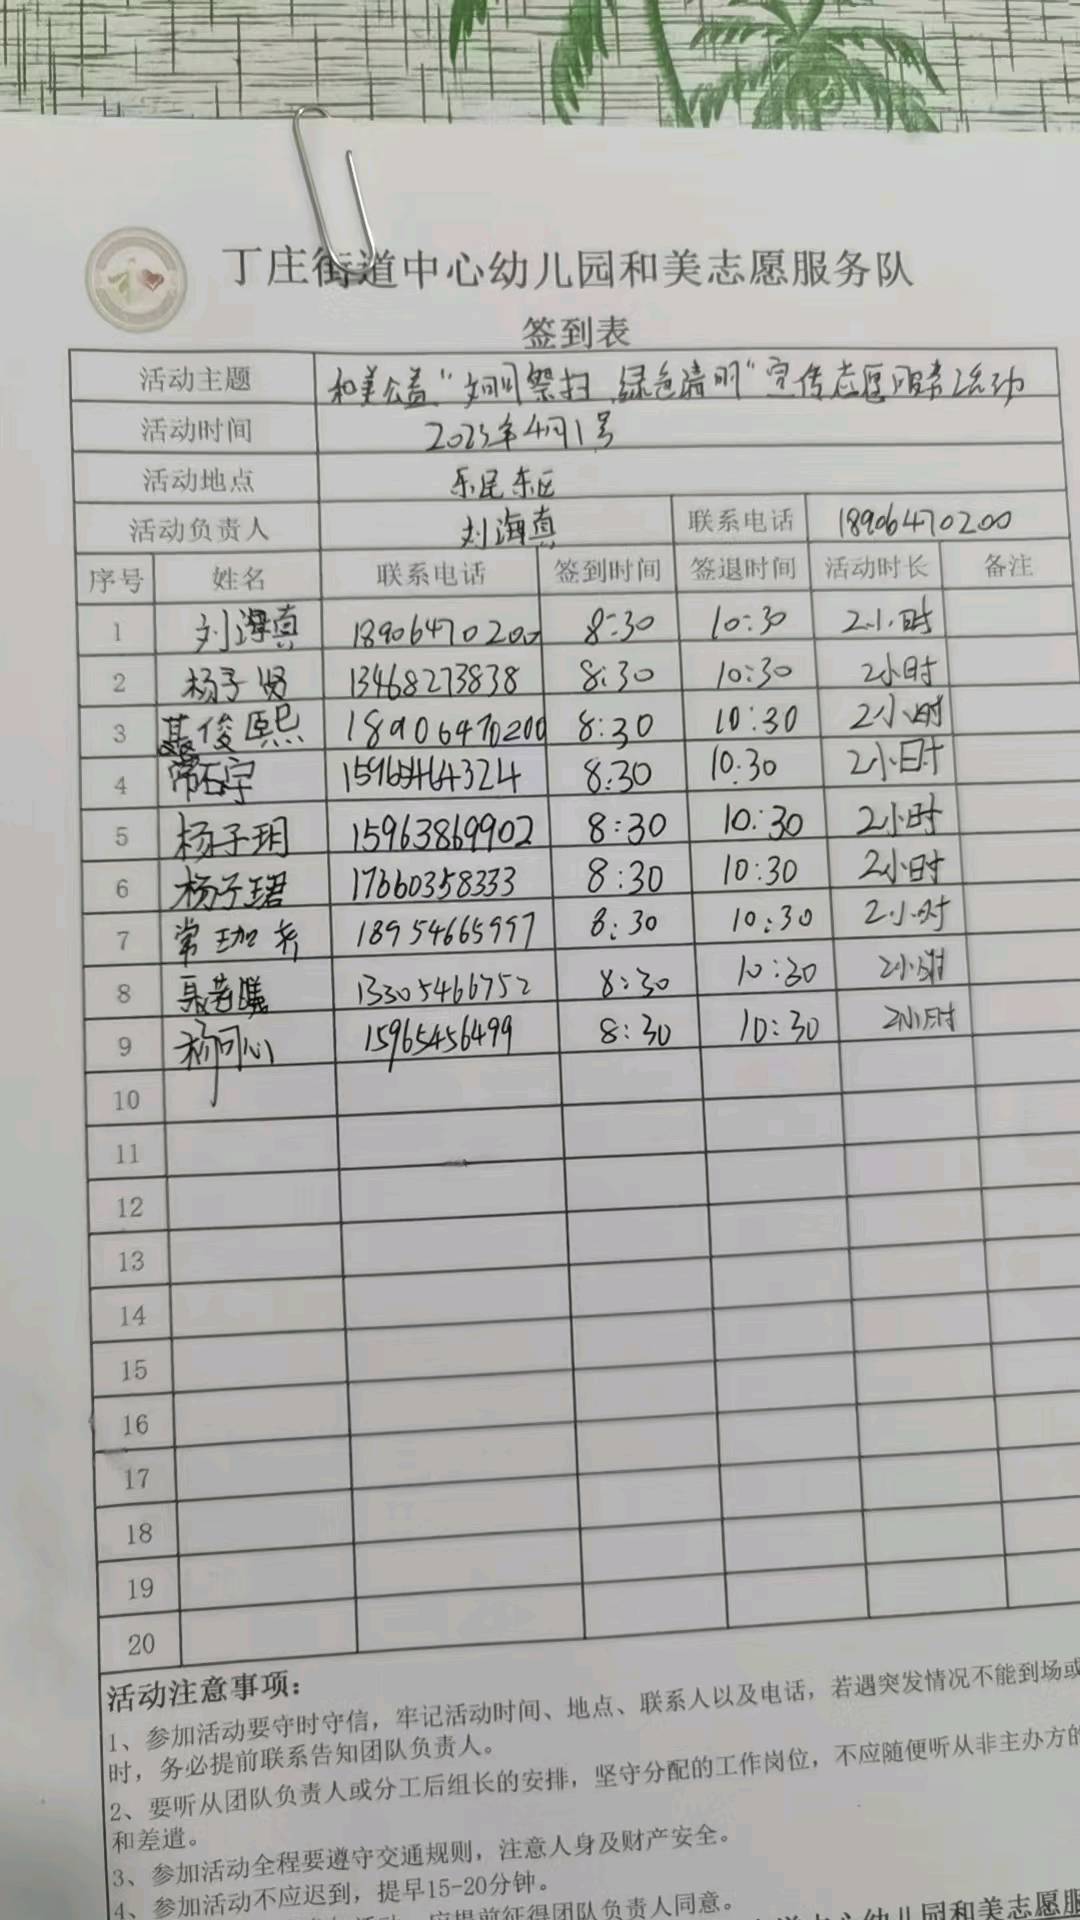 丁庄街道中心幼儿园和美志愿服务队
签到表
活动主题 和美公益"文明祭扫 绿色清明"宣传志愿服务活动
活动时间 2023年4月1号
活动地点 乐民东区
活动负责人 刘海真 联系电话 18906470200
序号 姓名 联系电话 签到时间 签退时间 活动时长 备注
1 刘海真 18906470200 8:30 10:30 2小时
2 杨子贤 13468273838 8:30 10:30 2小时
3 聂俊熙 18906470200 8:30 10:30 2小时
4 常石宇 8:30 10:30 2小时
5 杨子玥 15963869902 8:30 10:30 2小时
6 杨子珺 17660358333 8:30 10:30 2小时
7 常珈 18954665997 8:30 10:30 2小时
8 13305466752 8:30 10:30 2小时
9 杨可心 15965456499 8:30 10:30 2小时
10
11
12
13
14
15
16
17
18
19
20
活动注意事项：
1、参加活动要守时守信，牢记活动时间、地点、联系人以及电话，若遇突发情况不能到场或
时，务必提前联系告知团队负责人。
2、要听从团队负责人或分工后组长的安排，坚守分配的工作岗位，不应随便听从非主办方的
和差遣。
3、参加活动全程要遵守交通规则，注意人身及财产安全。
4、参加活动不应迟到，提早15-20分钟。
应提前征得团队负责人同意。
道中心幼儿园和美志愿服